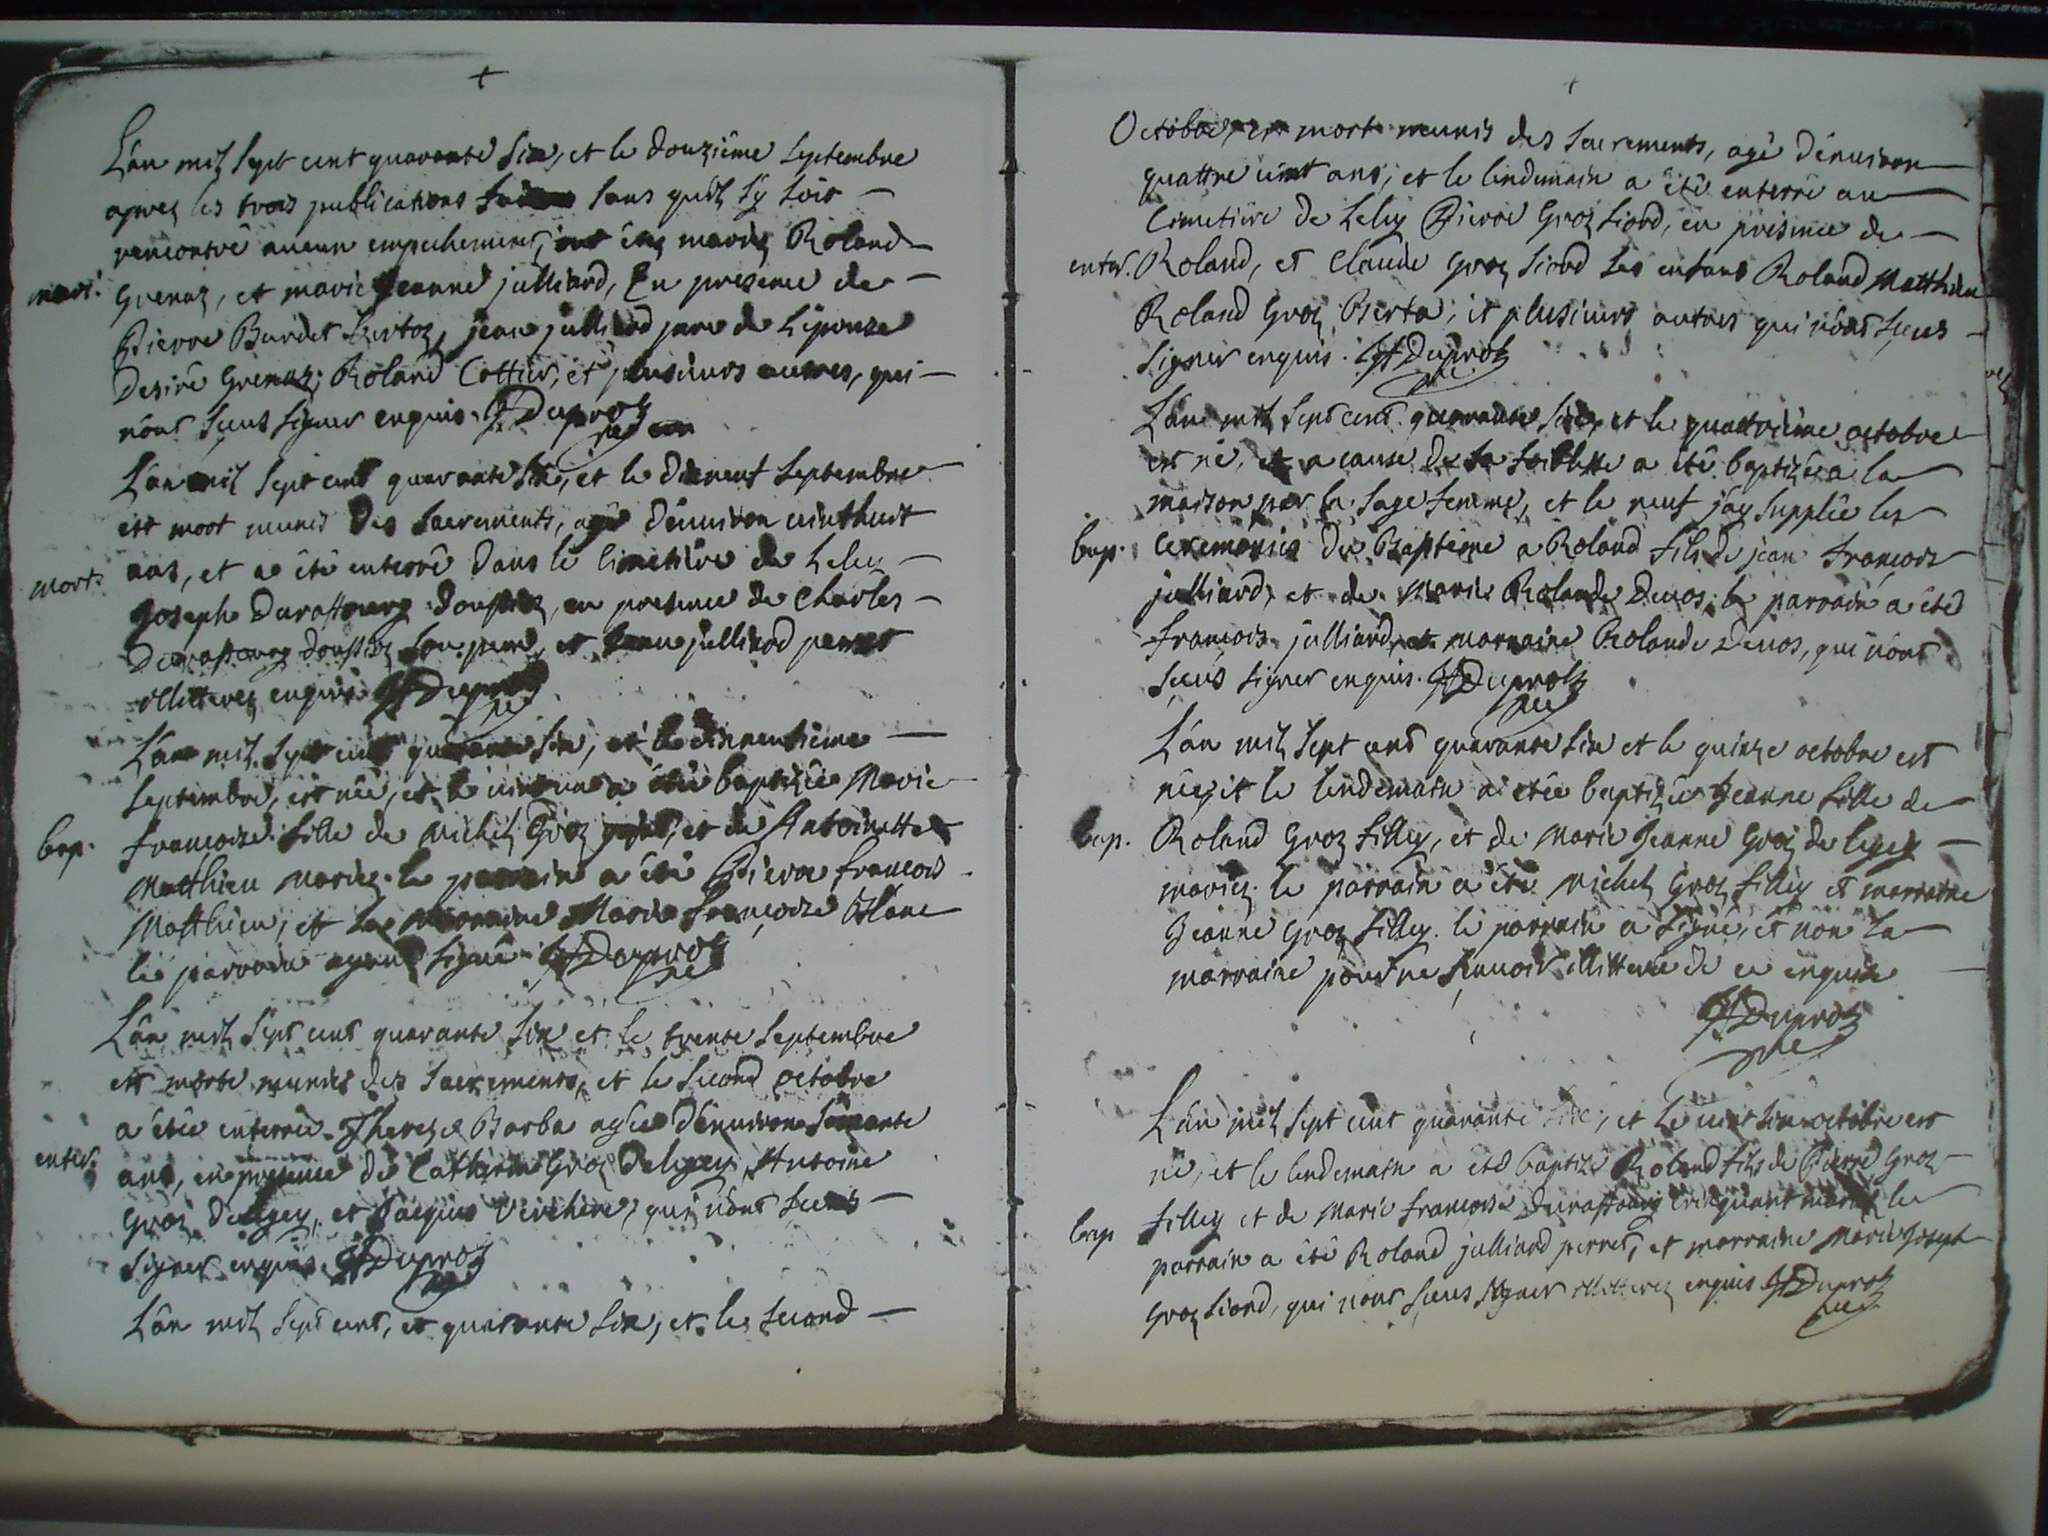 +
L'an mil sept cent quarante six, et le douzième septembre
aprez les trois publications sans quil s'y soit
rencontré aucun empechement, ont été mariez Roland
mari. Grenaz, et marie Jeanne julliard, En presence de
Pierre Burdet jean julliard pere de L'epouze
Desiré Grenaz, Roland Cottier, et plusieurs autres, qui
n'ont sceus signer enquis. JfDuproz
L'an mil sept cent quarante six, et le dixneuf septembre
est mort munis des sacrements, agé d'environ vinthuit
mort. ans, et a été enterré dans le cimetiere de Leley
Joseph Duraffourg en presence de Charles
Duraffourg son pere, et julliard perret
illitterez enquis JfDuproz
L'an mil sept cent quarante six, et le dixneuvième
septembre, est née, et le a étée baptizée Marie
bap. francoise fille de Michel Groz et de Antoinette
Matthieu mariez. le parrain a été Pierre francois
Matthieu, et la marraine Marie francoize Blanc
le parrain ayant signé. JfDuproz
L'an mil sept cent quarante six et le trente septembre
est morte munies des sacrements, et le second octobre
a étée enterrée Thereze Barba agée d'environ soixante
enter. ans, en presence de Catherin Groz Deligey, Antoine
Groz Deligey, et Jacques Verchere, qui n'ont sceus
signer enquis JfDuproz
L'an mil sept cent, et quarante six, et le second
+
Octobre, est mort munis des sacrements, agé d'environ
quattre vint ans, et le lendemain a été enterré au
Cimetiere de Leley Pierre Groz Siord, en presence de
enter. Roland, et Claude Groz Siord ses enfans Roland Matthieu
Roland Groz Berta, et plusieurs autres qui n'ont sceus
signer enquis. JfDuproz
L'an mil sept cent quarante six, et le quattrième octobre
est né, et a cause de sa foiblesse a été baptizé a la
maison par la sage femme, et le neuf j'ay supplée les
bap. Ceremonies de Bapteme a Roland fils de jean francois
julliard, et de Marie Rolande Devos, le parrain a été
francois julliard, et marraine Rolande Devos, qui n'ont
sceus signer enquis. JfDuproz
L'an mil sept cent quarante six et le quinze octobre est
née, et le lendemain a étée baptizée Jeanne fille de
bap. Roland Groz filley, et de Marie Jeanne Groz de ligey
mariez. le parrain a été Michel Groz filley et marraine
Jeanne Groz filley. le parrain a signé, et non la
marraine pour ne sçavoir illitterée de ce enquise
JfDuproz
L'an mil sept cent quarante six, et le vint six octobre est
né, et le lendemain a été baptizé Roland fils de Pierre Groz
bap filley et de Marie francoise Duraffourg mariez le
parrain a été Roland julliard perret, et marraine Marie Joseph
Groz Siord, qui n'ont sceus signer illitterez enquis JfDuproz